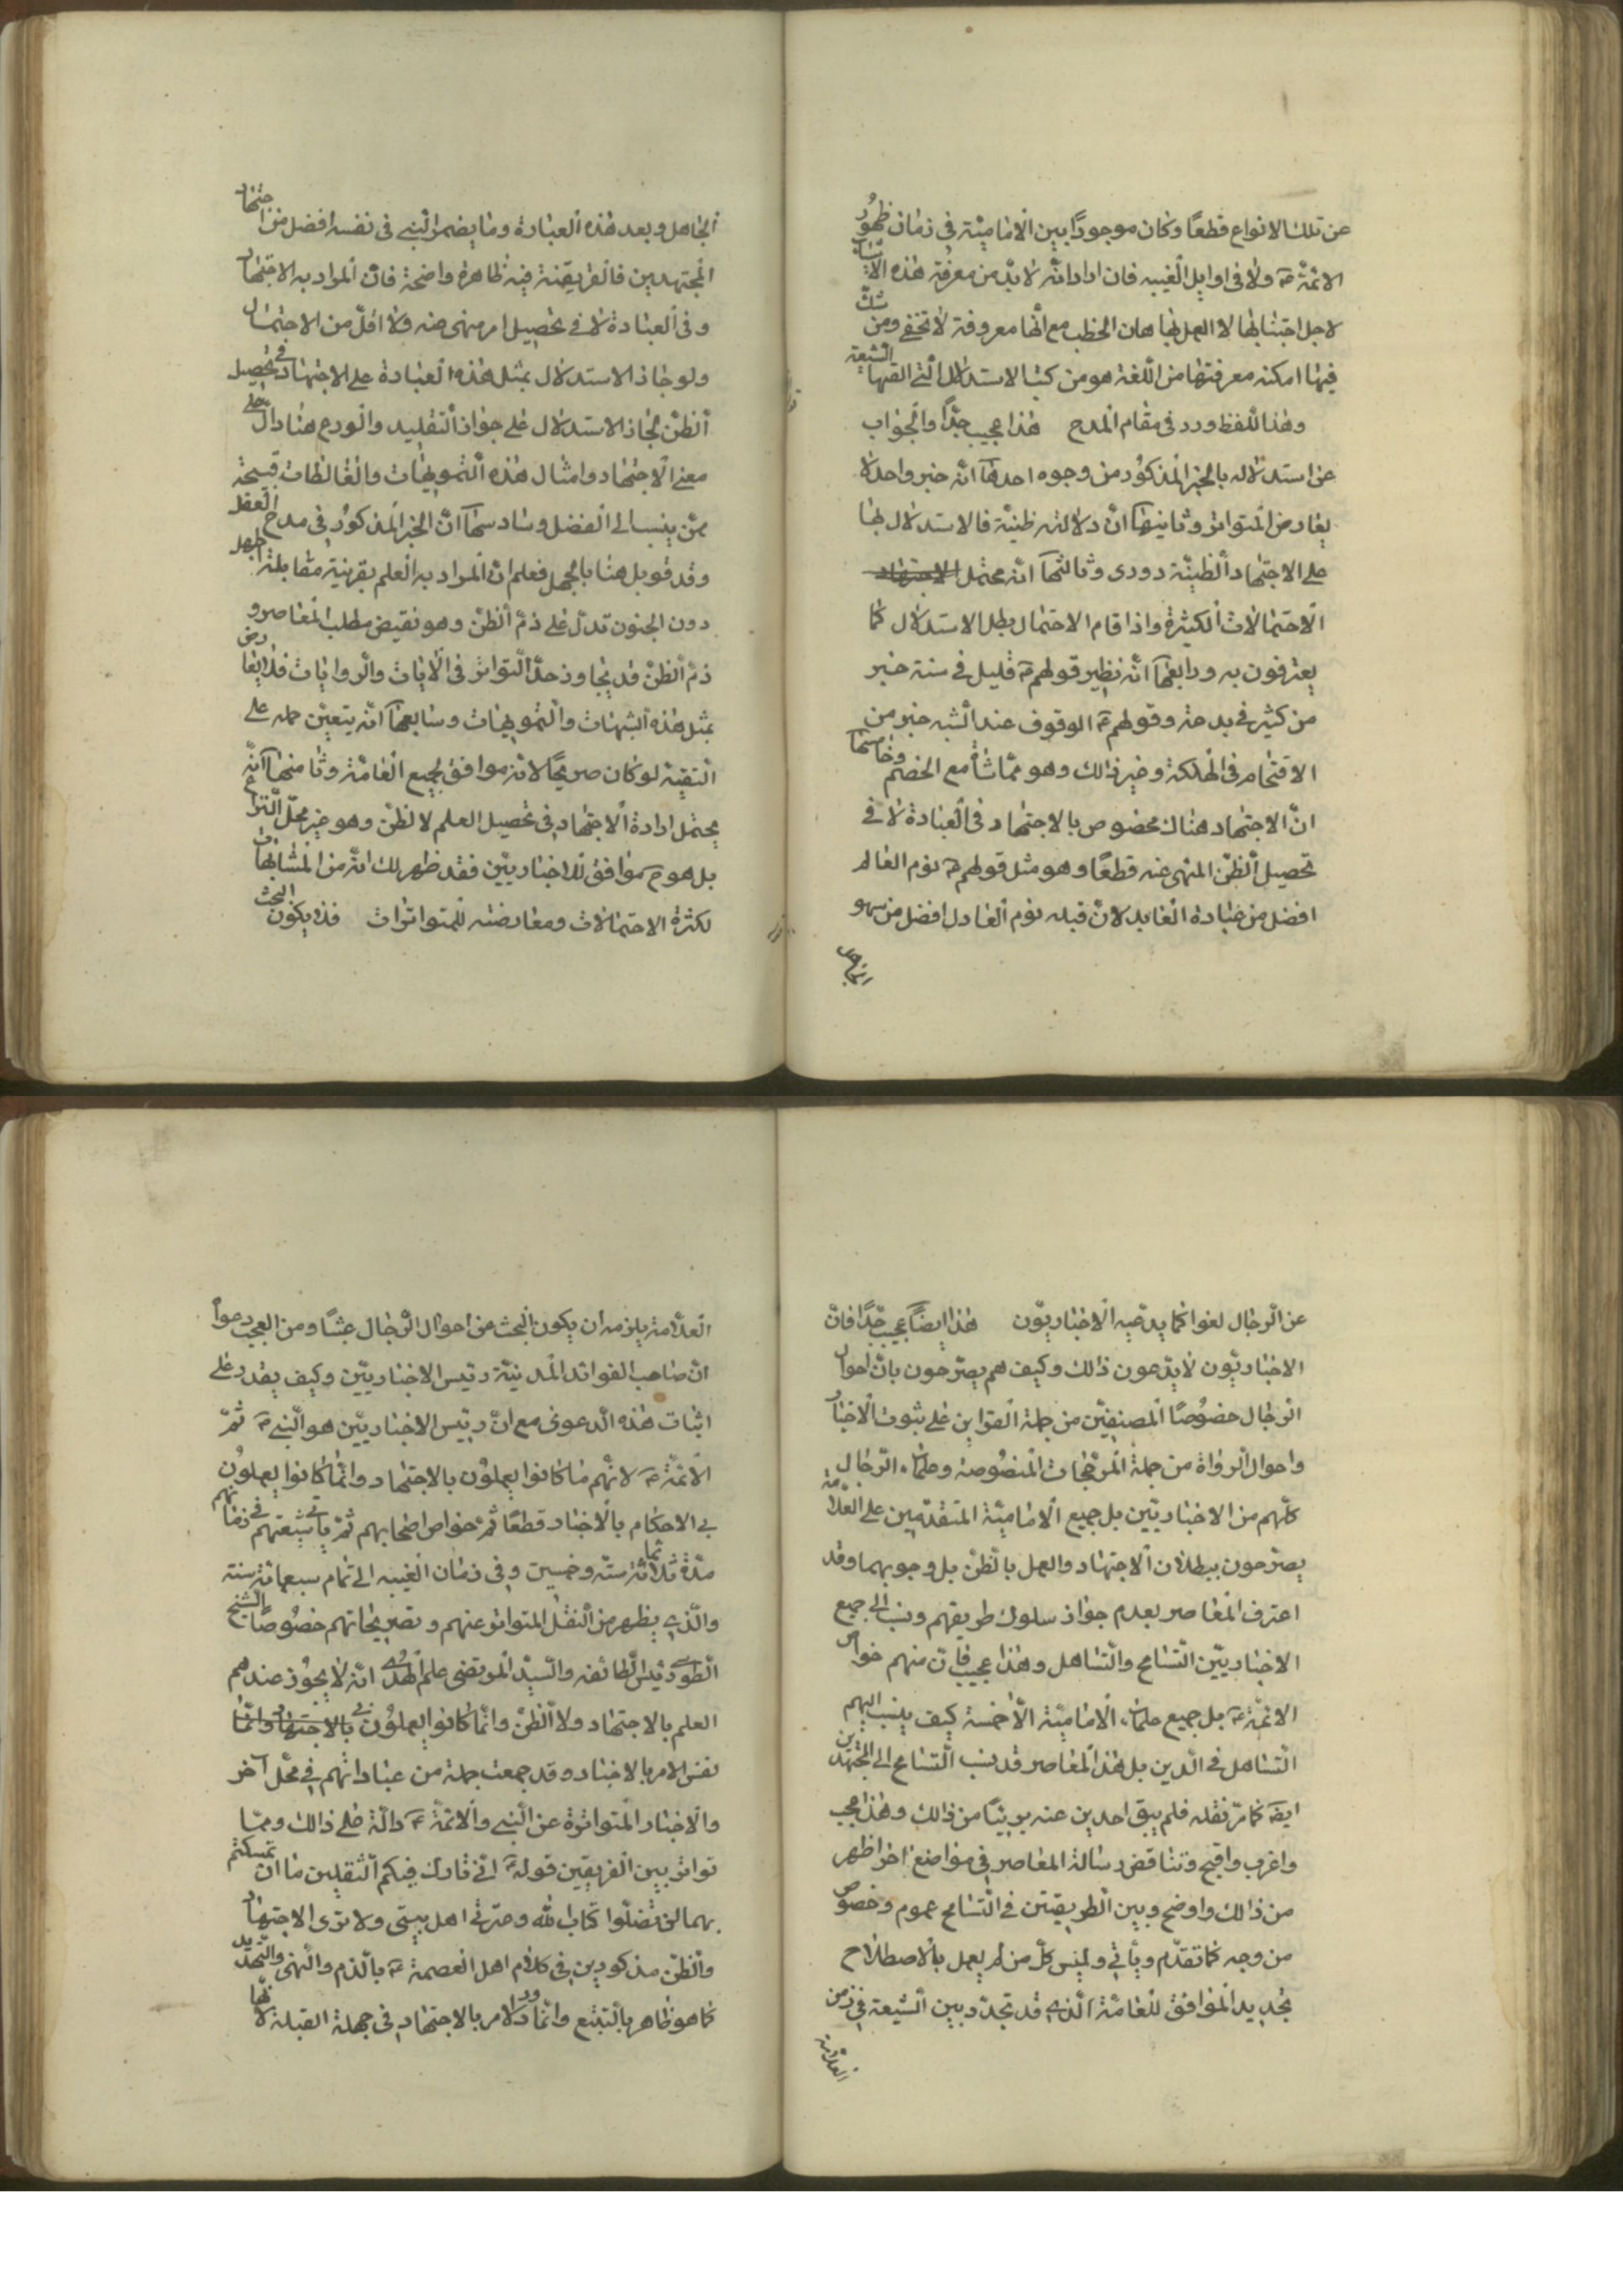 عن تلك الانواع قطعًا وكان موجودًا بين الامامیّة فی زمان ظهور
الائمّة ع ولا فی اوایل الغیبه فان اراد انّه لا بدّ من معرفة هذه الاشیاء
لاجل اجتنابها لا العمل بها هان الخطب مع انّها معروفة لا تخفی ومن شكّ
فیها امكنه معرفتها من اللّغة هو من كتب الاستدلال الّتی الفها الشیعة
وهذا اللّفظ ورد فی مقام المدح هذا عجیب جدًّا والجواب
عن استدلاله بالخبر المذكور من وجوه احدها انّه خبر واحد لا
یعارض المتواتر وثانیها انّ دلالته ظنیّة فالاستدلال بها
علی الاجتهاد الظنیّة دوری وثالثها انّه محتمل الاجتهاد
الاحتمالات الكثیرة واذا قام الاحتمال بطل الاستدلال كما
یعترفون به ورابعها انّه نظیر قولهم ع قلیل فی سنة خیر
من كثیر فی بدعة وقولهم ع الوقوف عند الشبه خیر من
الاقتحام فی الهلكة وغیر ذالك وهو ممّاشاة مع الخصم وخامسها
انّ الاجتهاد هناك مخصوص بالاجتهاد فی العبادة لا فی
تحصیل الظنّ المنهی عنه قطعًا وهو مثل قولهم ع نوم العالم
افضل من عبادة العابد لانّ قبله نوم العادل افضل من سهو
الجاهل وبعد هذه العبادة وما یضمر النّبی فی نفسه افضل من اجتهاد
المجتهدین فالقریقنة فیه ظاهرة واضحة فانّ المراد به الاجتهاد
وفی العبادة لا فی تحصیل امر منهی عنه ولا اقلّ من الاحتمال
ولو جاز الاستدلال بمثل هذه العبادة علی الاجتهاد فی تحصیل
الظنّ لجاز الاستدلال علی جواز التقلید والورع هنا دالّ علی
معنی الاجتهاد وامثال هذه التّمویهات والمغالطات قبیحة
ممّن ینسب الی الفضل وسادسها انّ الخبر المذكور فی مدح العقل
وقد قوبل هنا بالجهل فعلم انّ المراد به العلم بقرینة مقابلة الجهل
دون الجنون تدلّ علی ذمّ الظنّ وهو نقیض مطلب المعاصر و
ذمّ الظنّ قد تجاوز حدّ التواتر فی الایات والروایات فلا یعارض
بمثل هذه الشبهات والتّمویهات وسابعها انّه یتعیّن حمله علی
التقیّة لو كان صریحًا لانّه موافق لجمیع العامّة وثامنها انّه
یحتمل ارادة الاجتهاد فی تحصیل العلم لا الظنّ وهو غیر محلّ النزاع
بل هو ح موافق للاخباریّین فقد ظهر لك انّه من المتشابهات
لكثرة الاحتمالات ومعارضته للمتواترات فذ یكون البحث
عن الرّجال لغوا كما یدعیه الاخباریّون هذا ایضًا عجیب جدًّا فانّ
الاخباریّون لا یدّعون ذالك وكیف هم یصرّحون بانّ احوال
الرّجال خصوصًا المصنفین من جملة القراین علی ثبوت الاخبار
واحوال الرواة من جملة المرجّحات المنصوصة وعلماء الرّجال
كلّهم من الاخباریّین بل جمیع الامامیّة المتقدّمین علی العلّامة
یصرّحون ببطلان الاجتهاد والعمل بالظنّ بل وجوبهما وقد
اعترف المعاصر بعدم جواز سلوك طریقهم ونسب الی جمیع
الاخباریّین التّسامح والتّساهل وهذا عجیب فانّ منهم خواصّ
الائمّة ع بل جمیع علماء الامامیّة الّا خمسة كیف ینسب الیهم
التّساهل فی الدّین بل هذا المعاصر قد نسب التّسامح الی المجتهدین
ایضً كما مرّ نقله فلم یبق احد من عنه بریئًا من ذالك وهذا عجب
واغرب واقبح وتناقض رسالة المعاصر فی مواضع اخر اظهر
من ذالك واوضح وبین الطریقتین فی التّسامح عموم وخصوص
من وجه كما تقدّم ویأتی ولیس كلّ من لم یعمل بالاصطلاح
بجدید الموافق للعامّة الّذی قد تجدّد بین الشّیعة فی زمن
العلّامة
العلّامة یلزمه ان یكون البحث عن احوال الرّجال عبثًا ومن العجب دعوا
انّ صاحب الفوائد المدینیّة رئیس الاخباریّین وكیف یقدر علی
اثبات هذه الدعوی مع انّ رئیس الاخباریّین هو النّبی ع ثمّ
الائمّة ع لانّهم ما كانوا یعملون بالاجتهاد وانّما كانوا یعملون
فی الاحكام بالاخبار قطعًا ثمّ خواص اصحابهم ثمّ باقی شیعتهم فی زمانهم
مدّة ثلاثمائة ستّه وخمسین وفی زمان الغیبه الی تمام سبعمائة سنة
والّذی یظهر من النقل المتواتر عنهم وتصریحاتهم خصوصًا الشّیخ
الطوسی رئیس الطّائفه والسّیّد المرتضی علم الهدی انّه لا یجوز عندهم
العلم بالاجتهاد ولا الظنّ وانّما كانوا یعملون فی بالاجتهاد وانّما
نفس الامر بالاخبار وقد جمعت جملة من عباداتهم فی محلّ آخر
والاخبار المتواترة عن النّبی والائمّة ع دالّة علی ذالك وممّا
تواتر بین الفریقین قوله ع انّی تارك فیكم الثّقلین ما ان تمسكتم
بهما لن تضلّوا كتاب اللّه وعترتی اهل بیتی ولا تری الاجتهاد
والظنّ مذكورین فی كلام اهل العصمة ع بالذّم والنّهی والتّهدید
كما هو ظاهر بالتّتبّع وانّما ورد الامر بالاجتهاد فی جهلة القبلة لانّها